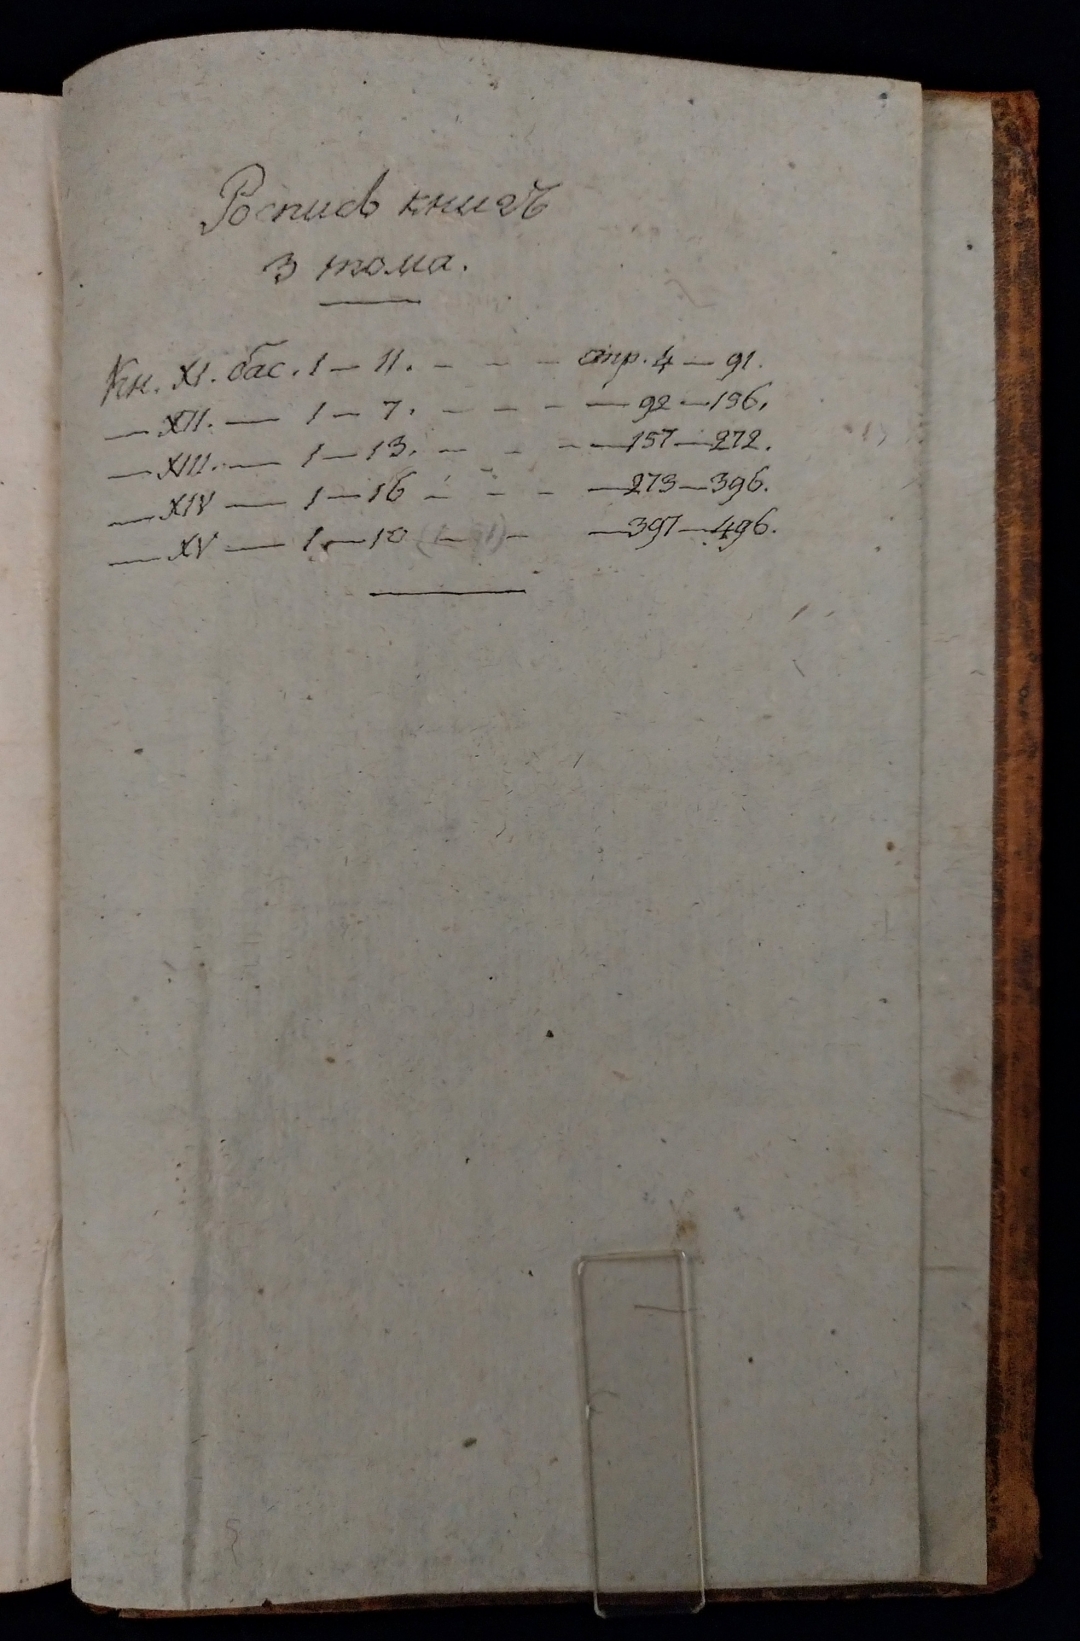 Роспись книгъ
3 тома.
Кн. XI. бас. 1 — 11. - - - стр. 4 — 91.
— XII. — 1 — 7. - - - — 92 — 156.
— XIII. — 1 — 13. - - - — 157 — 272.
— XIV — 1 — 16 - - - — 273 — 396.
— XV — 1 — 10 - - — 397 — 496.